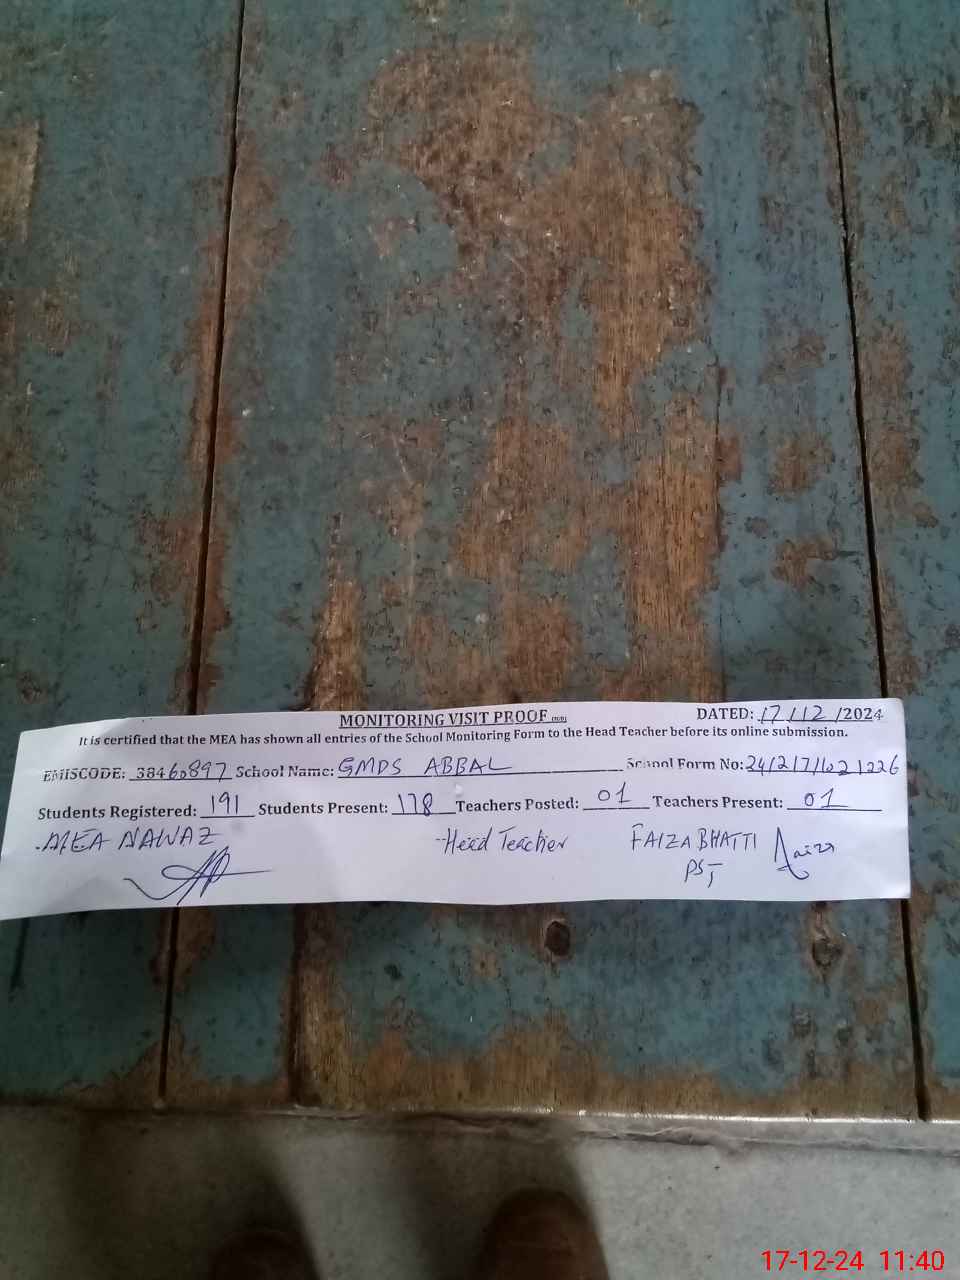 MONITORING VISIT PROOF
DATED: 17/12/2024
It is certified that the MEA has shown all entries of the School Monitoring Form to the Head Teacher before its online submission.
EMISCODE: 38460897 School Name: GMPS ABBAL School Form No: 24/217/1021226
Students Registered: 191 Students Present: 178 Teachers Posted: 01 Teachers Present: 01
MEA NAWAZ Head Teacher FAIZA BHATTI
PST
17-12-24 11:40